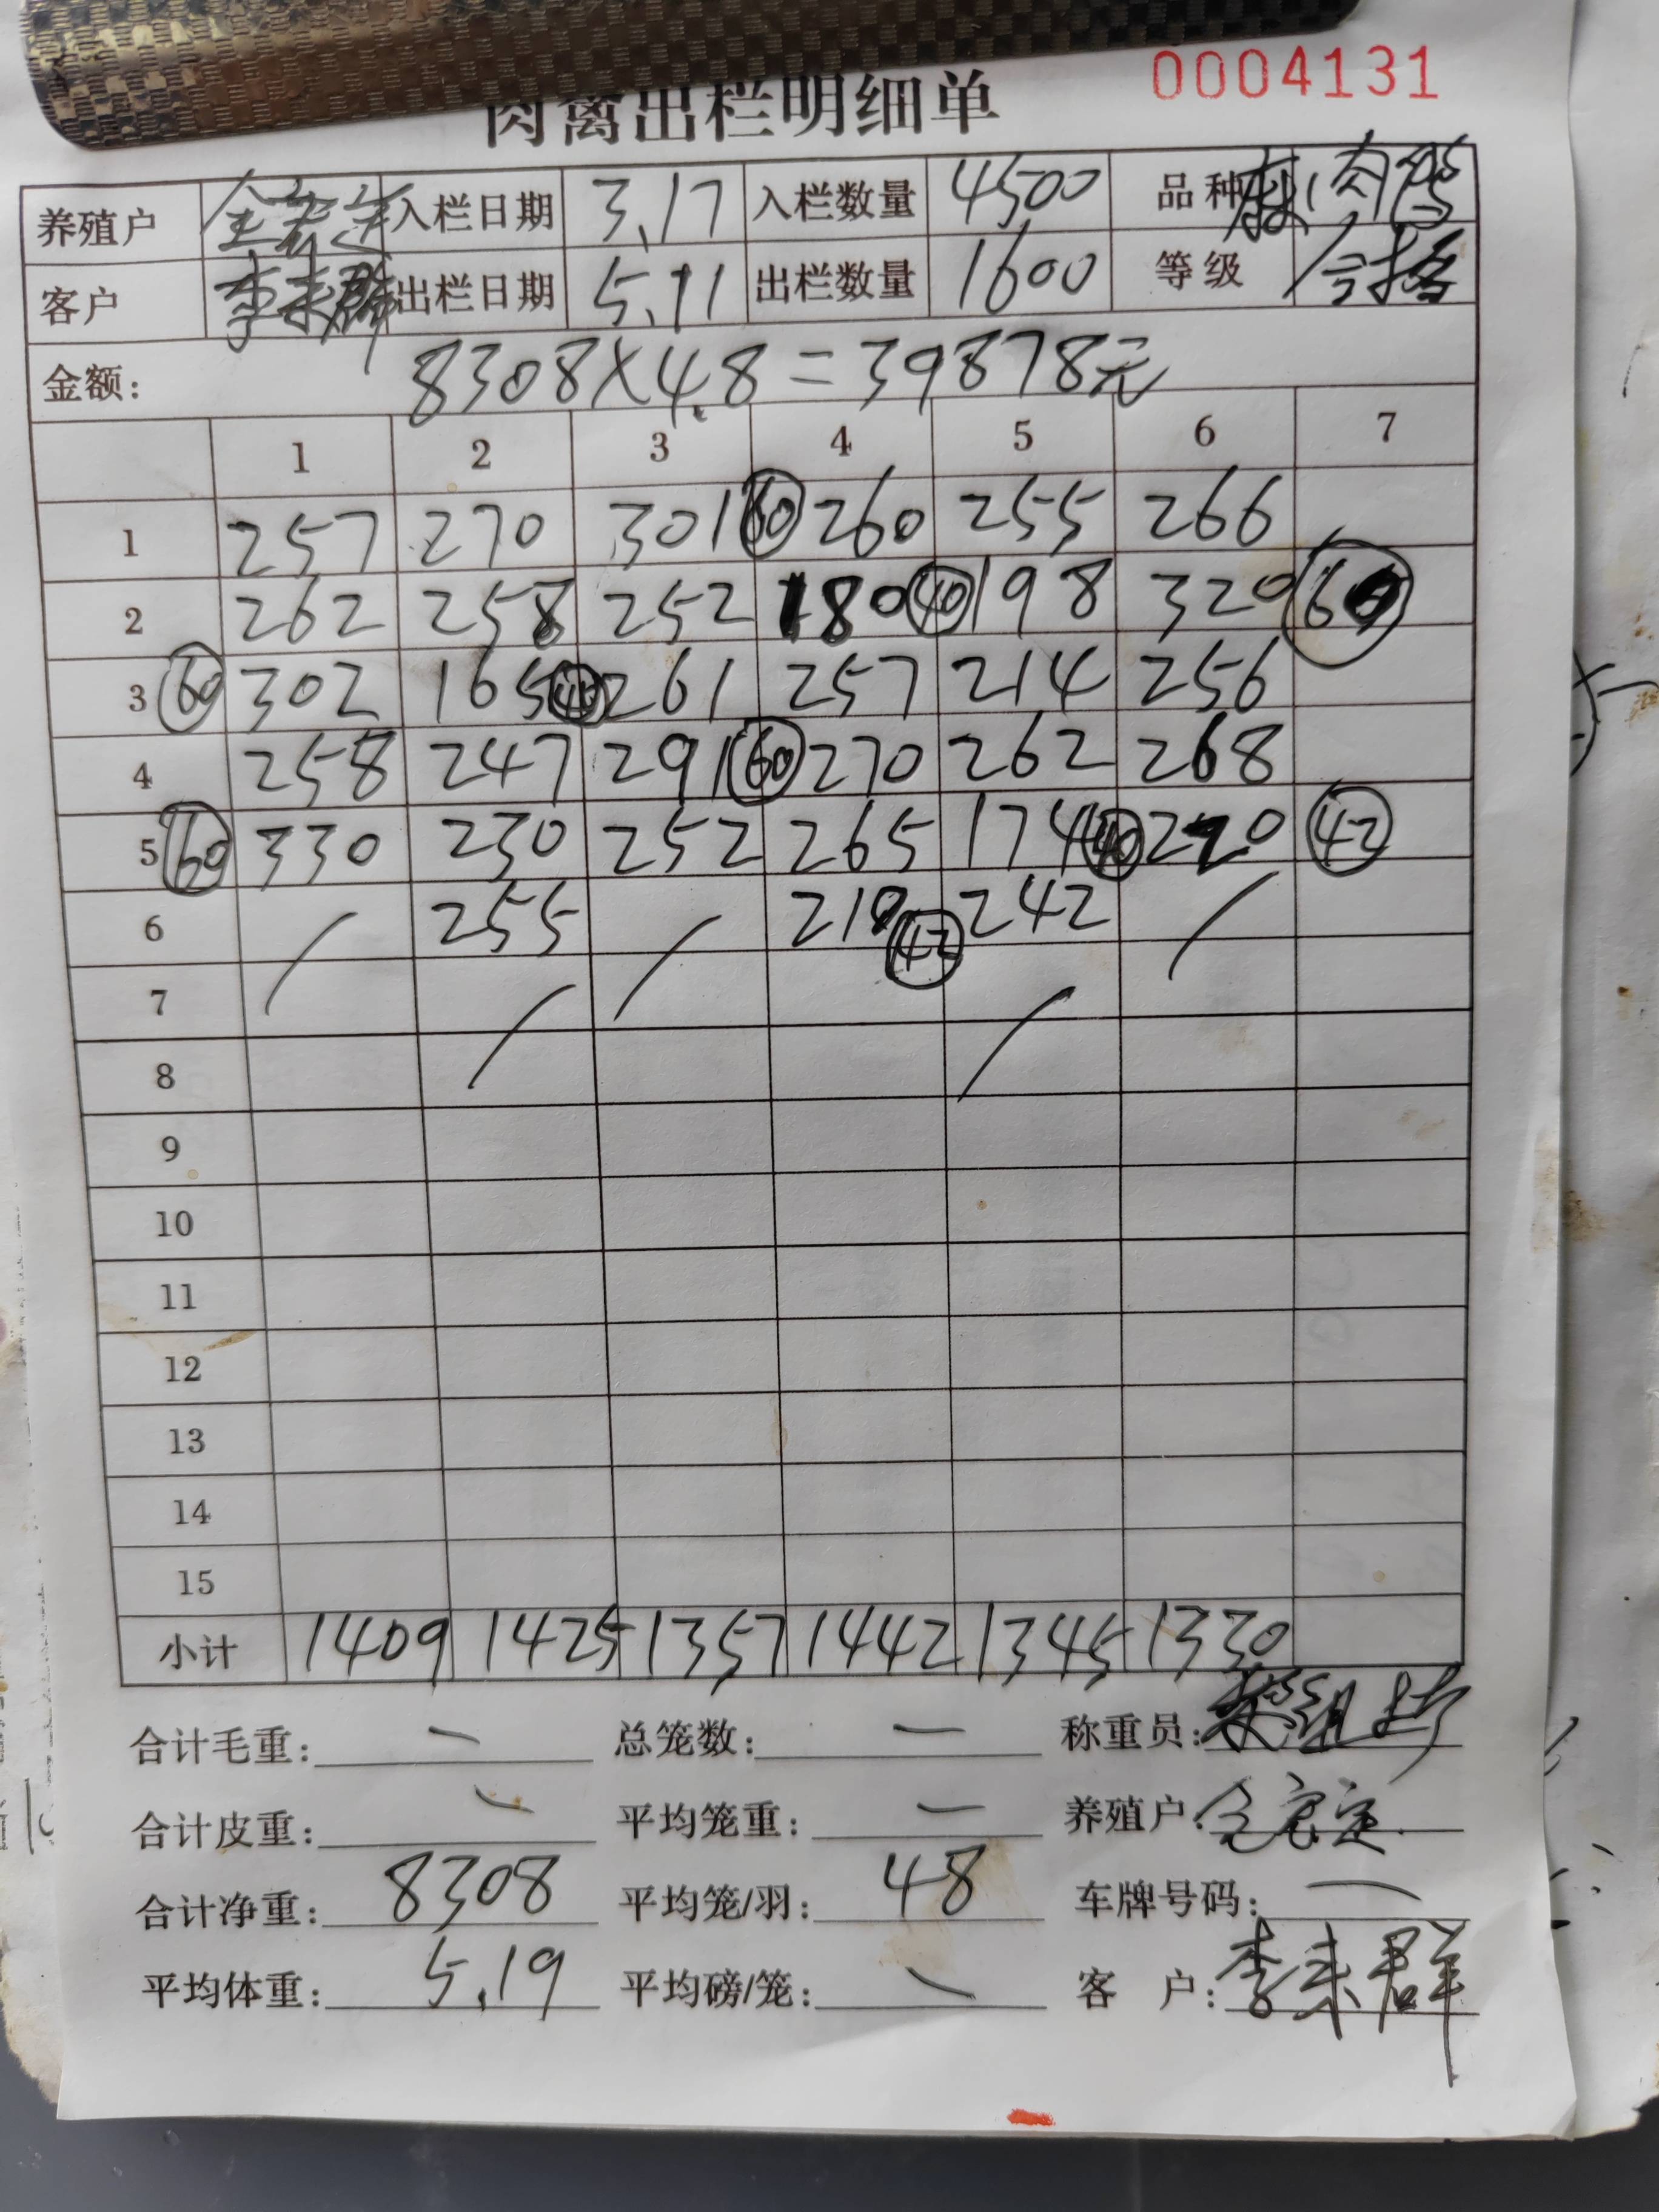 0004131
肉禽出栏明细单
养殖户 入栏日期 3.17 入栏数量 4500 品种 麻肉鸭
客户 李来群 出栏日期 5.11 出栏数量 1600 等级 合格
金额: 8308×4.8=39878元
1 2 3 4 5 6 7
1 257 270 301 60 260 255 266
2 262 258 252 180 40 198 320 60
3 60 302 165 40 261 257 214 256
4 258 247 291 60 270 262 268
5 60 330 230 252 265 174 40 220 42
6 / 255 / 210 42 242 /
7 / /
8
9
10
11
12
13
14
15
小计 1409 1425 1357 1442 1345 1330
合计毛重: — 总笼数: — 称重员:
合计皮重: — 平均笼重: — 养殖户:
合计净重: 8308 平均笼/羽: 48 车牌号码: —
平均体重: 5.19 平均磅/笼: — 客 户: 李来群